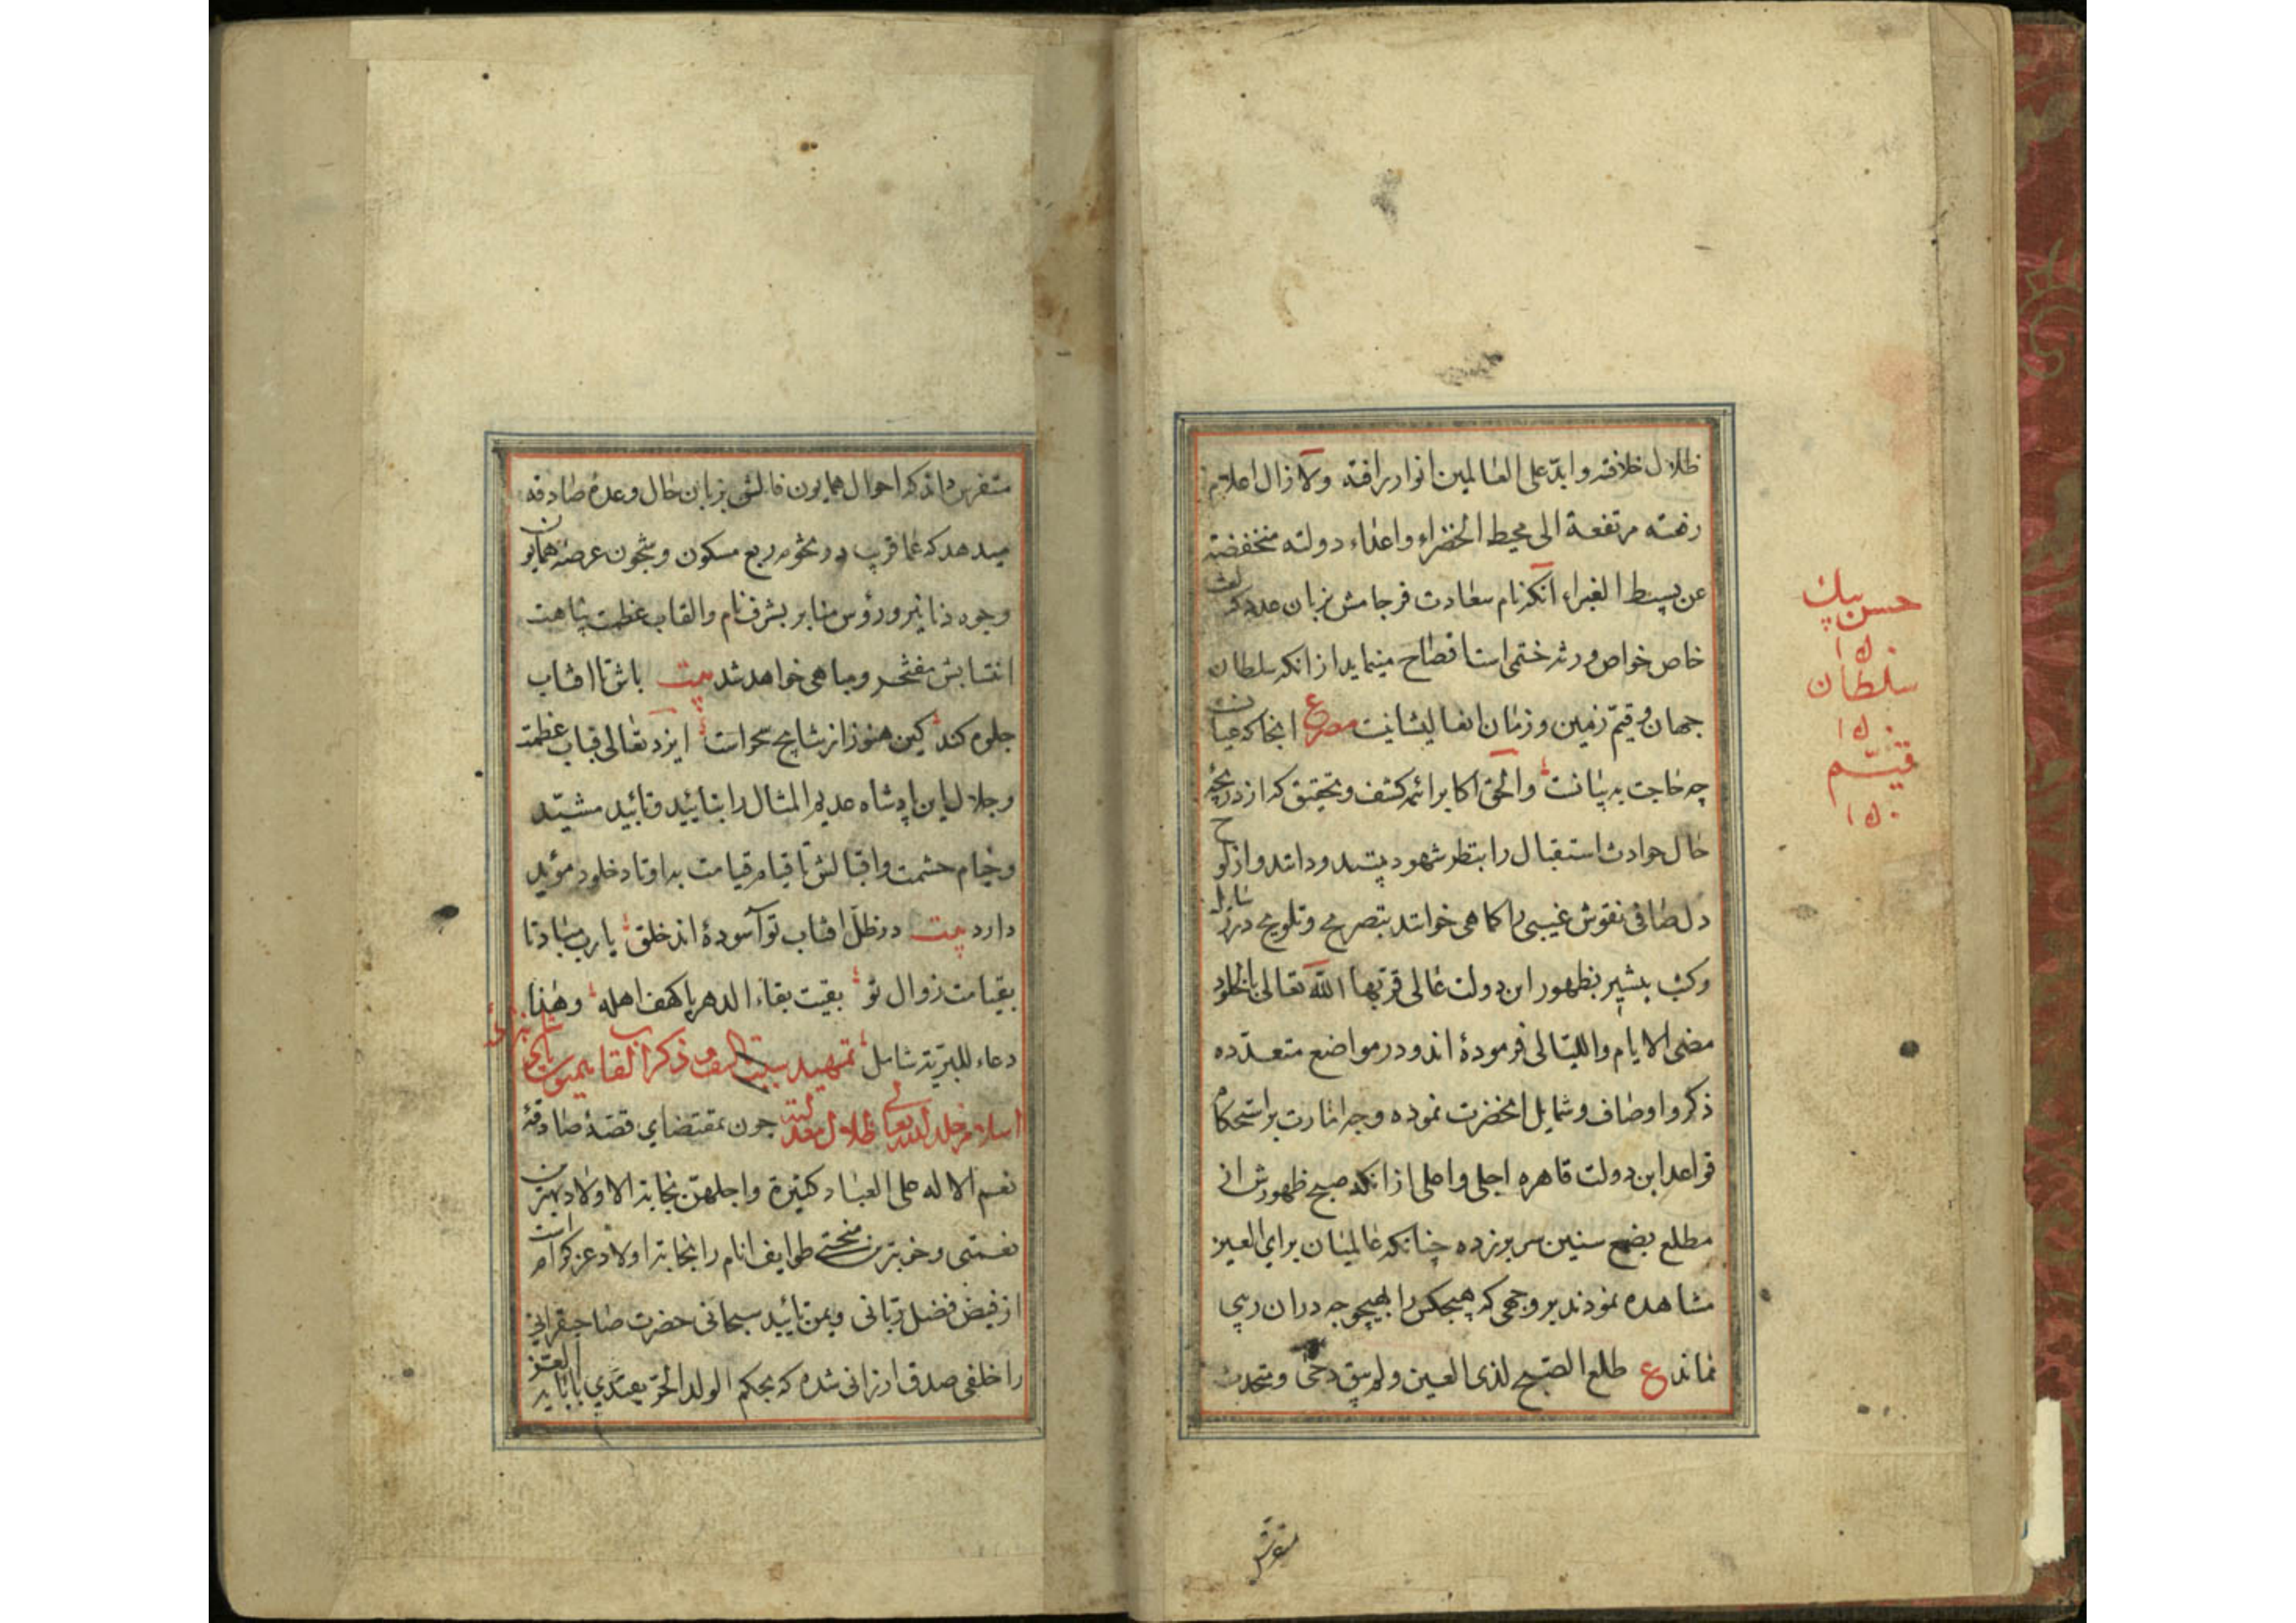 ظلال خلافته وابدّ على العالمين انوار رافته ولا زال اعلام
رفعته مرتفعة الى محيط الخضراء واعداء دولته منخفضته
عن بسيط الغبراء آنكه نام سعادت فرجامش بزبان عدد كه لغت
خاص خواص ورثه ختمی است افصاح مینماید از انکه سلطان
جهان و قیّم زمین و زمان انفا لیشانیت مصرع انجا که عیانست
چه حاجت به بیانست والحق اکابر ائمه کشف و تحقیق که از دریچه
حال حوادث استقبال را بنظر شهود بینند و دانند و از لوح
دل صافی نقوش غیبی را کما هی خوانند بتصریح و تلویح در رسایل
وکتب ببشیر بظهور این دولت عالی قرنها الله تعالی بالخلود
مضی الایام واللیالی فرموده اند و در مواضع متعدّده
ذکر و اوصاف و شمایل انحضرت نموده وجه امارت بر استحکام
قواعد این دولت قاهره اجلی و اعلی از انکه صبح ظهورش از
مطلع بضع سنین سر بر زده چنانکه عالمیان برای العین
مشاهده نمودند بر وجهی که هیچکس را بهیچوجه دران ریبی
نماند ع طلع الصبح لذی العین ولم یبق دجی و متحدث
متفرس
حسن بیك
۱۵۰
سلطان
۱۵۰
قیّم
۱۵۰
متفرس داند که احوال همایون فالش بزبان حال وعدهٔ صادقه
میدهد که عما قریب در تخوم ربع مسکون و شجون عرصه همایون
وجوه دنانیر و رؤس منابر بشرف نام والقاب عظمت پناهت
انتسابش مفتخر و مباهی خواهد شد بیت باش تا افتاب
جلوه کند کین هنوز از نتایج سحر است ایزد تعالی قباب عظمت
وجلال این پادشاه عدیم المثال را بتایید و تابید مشیّد
وخیام حشمت واقبالش تا قیام قیامت به اوتاد خلود مؤید
دارد بیت در ظلّ افتاب تو آسودهٔ اند خلق یا رب مبادتا
بقیامت زوال تو بقیت بقاء الدهر یا کهف اهله وهذا
دعاء للبریة شامل تمهید سبب تالیف و ذکر القاب همیون
اسلام خلد الله تعالی ظلال معدلته چون بمقتضای قضیهٔ صادقه
نعم الاله علی العباد کثیرة واجلهن نجابة الاولاد بهترین
نعمتی و خوبترین منحتی طوایف انام را نجابة اولاد عز کرام است
از فیض فضل ربّانی ویمن تایید سبحانی حضرت صاحبقرانی
را خلفی صدق ارزانی شده که بحکم الولد الحرّ یقتدی باباپه العز